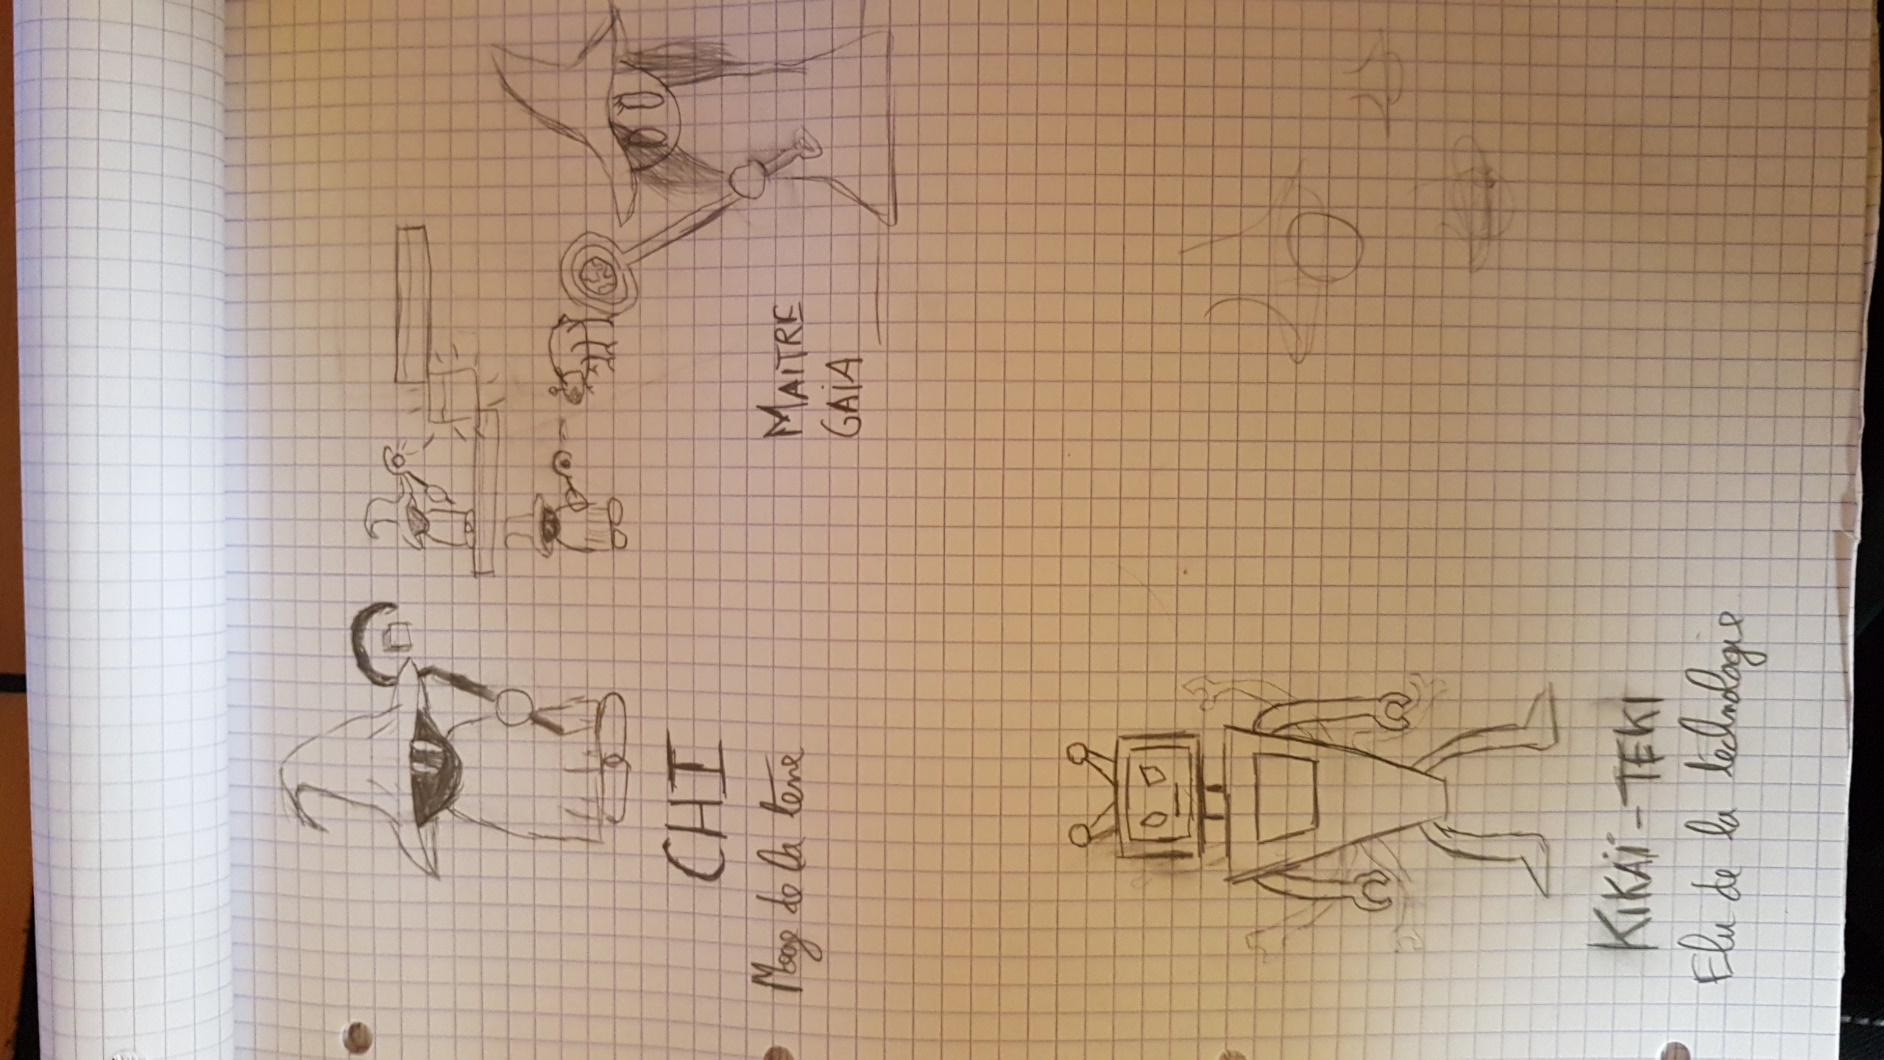 CHI
Mage de la terre
MAITRE
GAiA
KiKAÏ-TEKI
Elu de la technologie